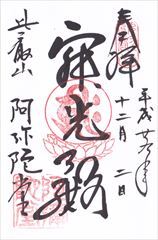 奉拝
平成廿六年
十二月 二日
寂光殿
比叡山
阿弥陀堂